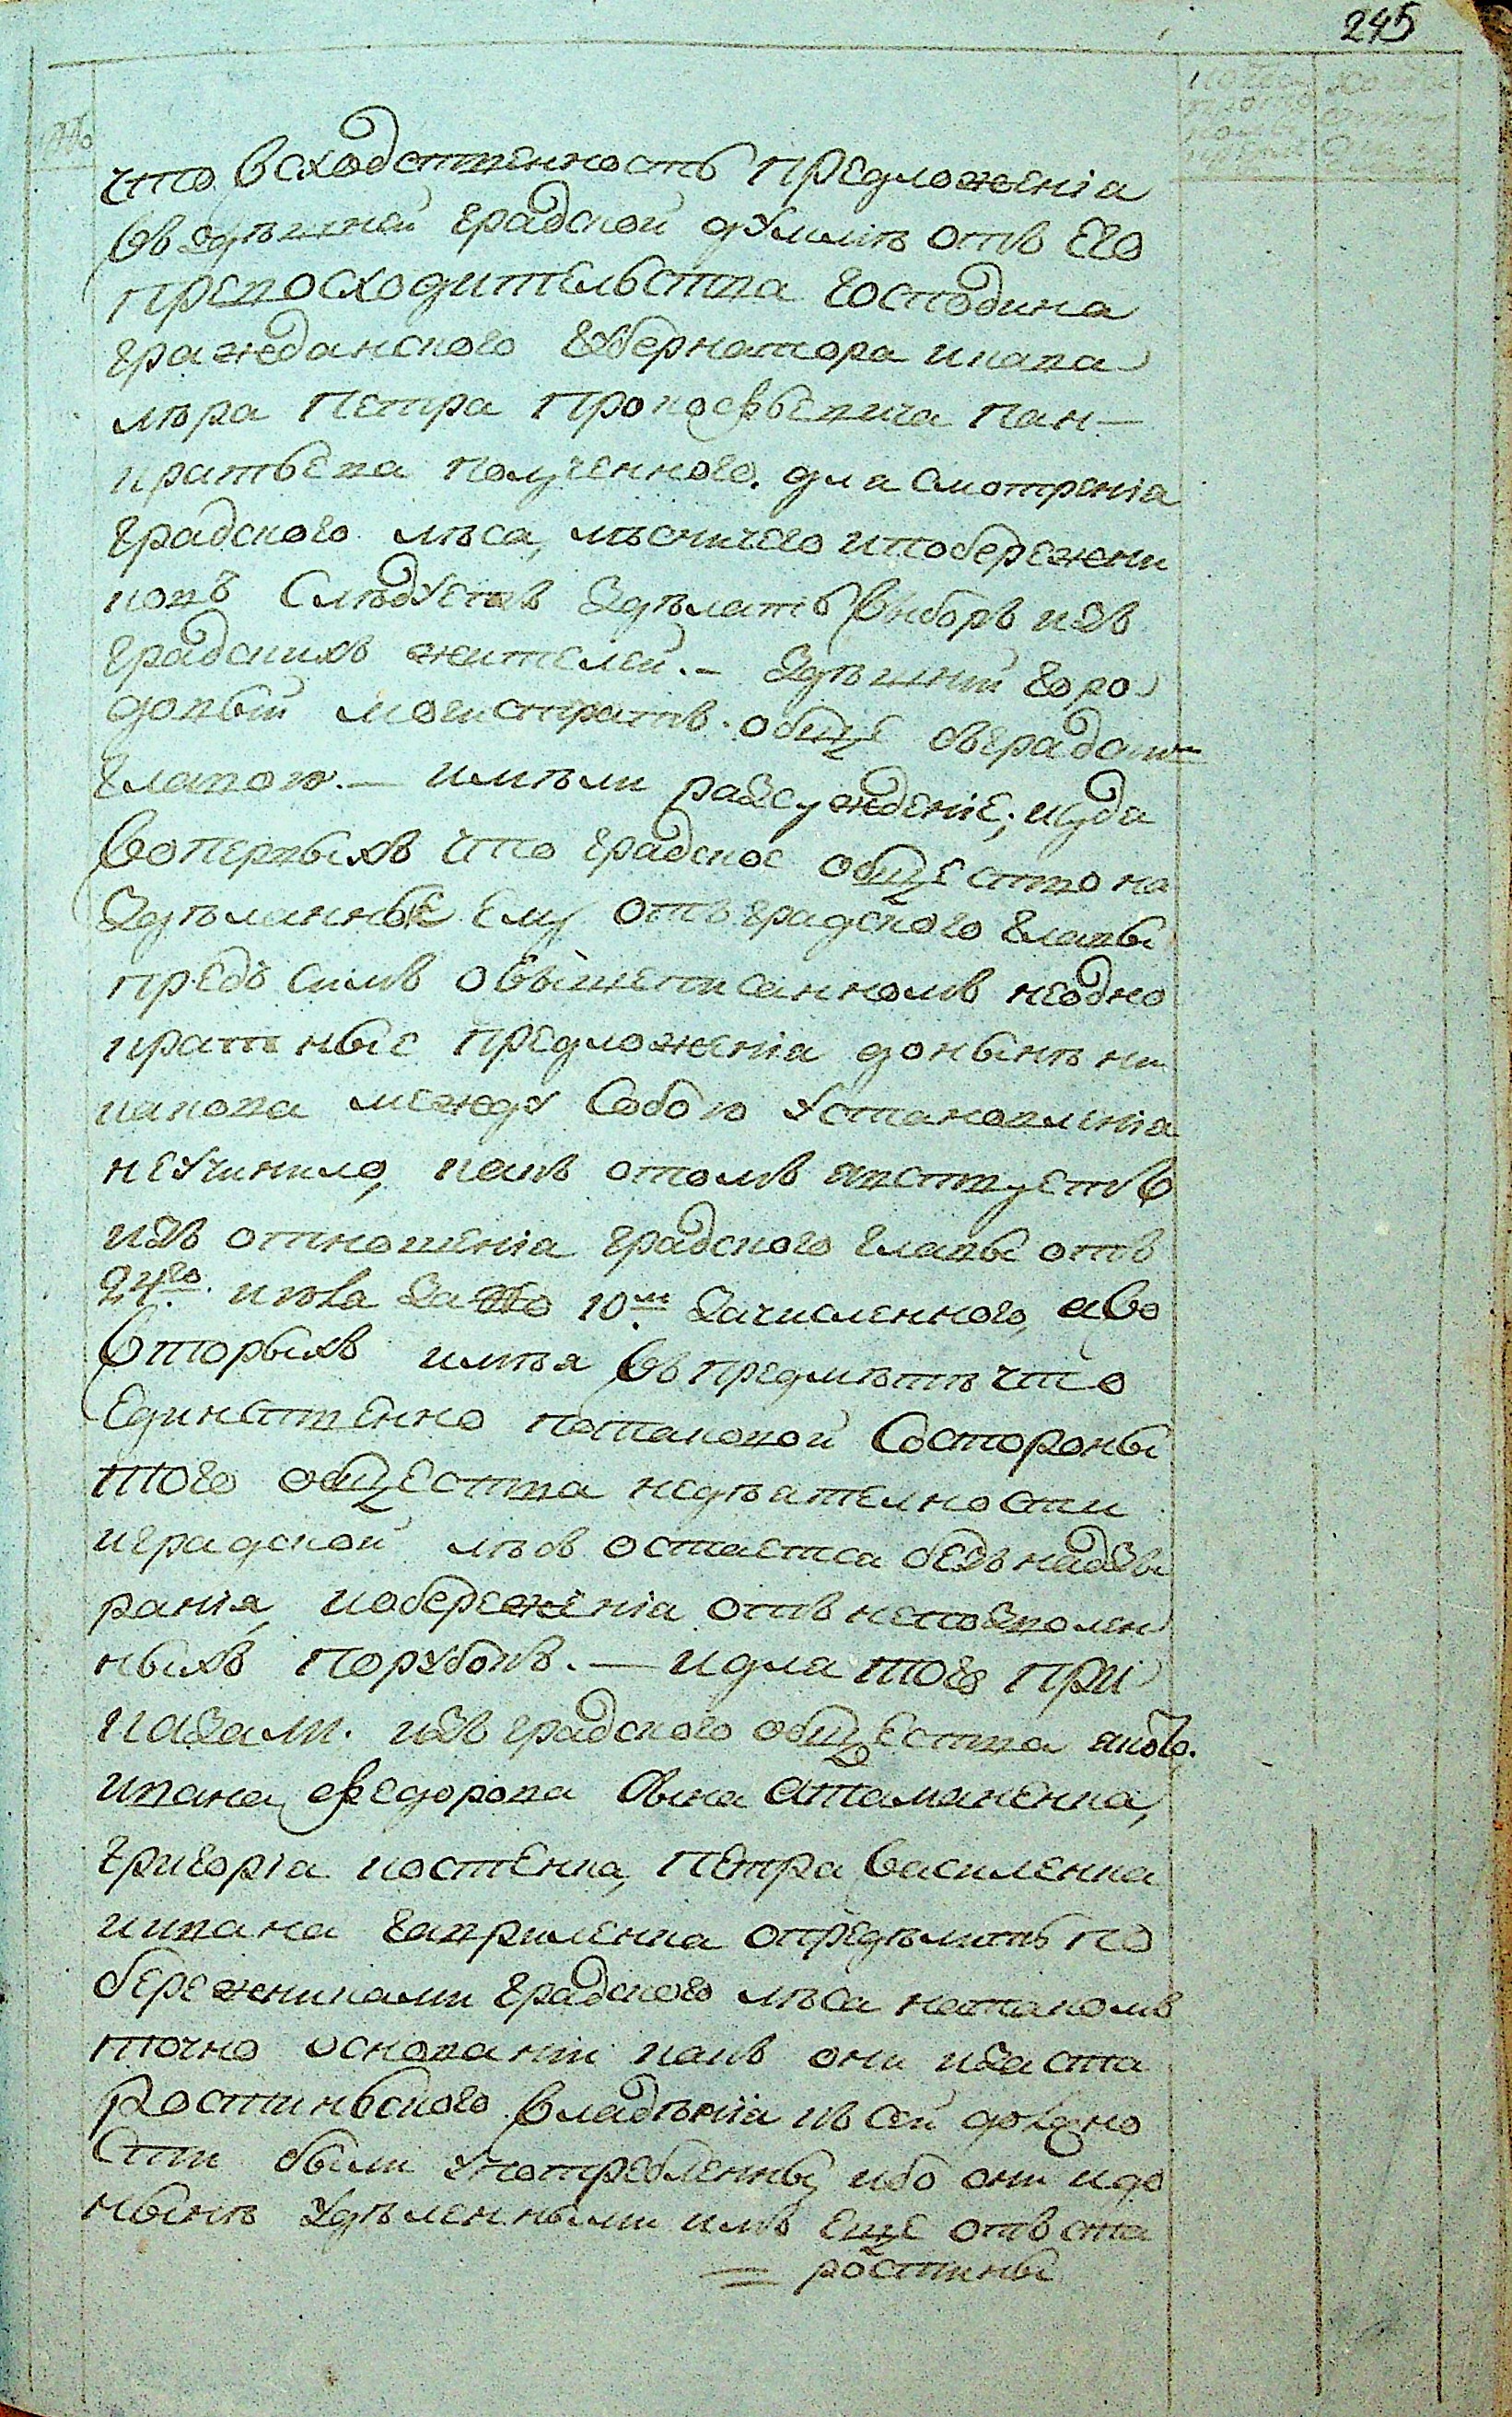 245
№
что всходственность предложенія
въ здѣшней градской думмѣ отъ Его
превосходительства господина
гражданского губернатора икава
лѣра Петра Прокофьевича Пан-
кратьева полученного. для смотренія
градского лѣса, лѣсничего ипобережни
ковъ Слѣдуетъ здѣлать выборъ изъ
градскихъ жителей.- здѣшній горо
довый магистратъ. обще съградскою
главою.- имѣли разсужденіе; куда
вопервыхъ что градское общество на
здѣланныE Ему отъ градского главы
предъ симъ овышеписанномъ неодно
кратные предложенія донынѣ ни
какова между Собою установленія
неучинило, какъ отомъ явствуетъ
изъ отношенія градского главы отъ
24го. июля за № 10м. зачисленного, аво
вторыхъ имѣя въ предмѣтѣ что
Единственно потаковой Состороны
того общества недѣятелности
иградской лѣсъ остается безъ надзы
ранія, иобереженія отъ непозволен
ныхъ порубокъ.- идля того при
казали. изъ градского общества якого.
ивана федорова Сына Атаманенка,
григорія костенка, Петра василенка
иивана гавриленка опредѣлить по
бережниками градского лѣса натакомъ
точно основаніи какъ они иза ста
ростинского владѣнія къ сей должно
сти были употребленны, ибо они идо
нынѣ удѣленными имъ Еще отъ ста
= ростины